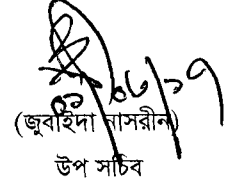 ৩১/০৮/১৭
(জুবাইদা নাসরীন)
উপ সচিব